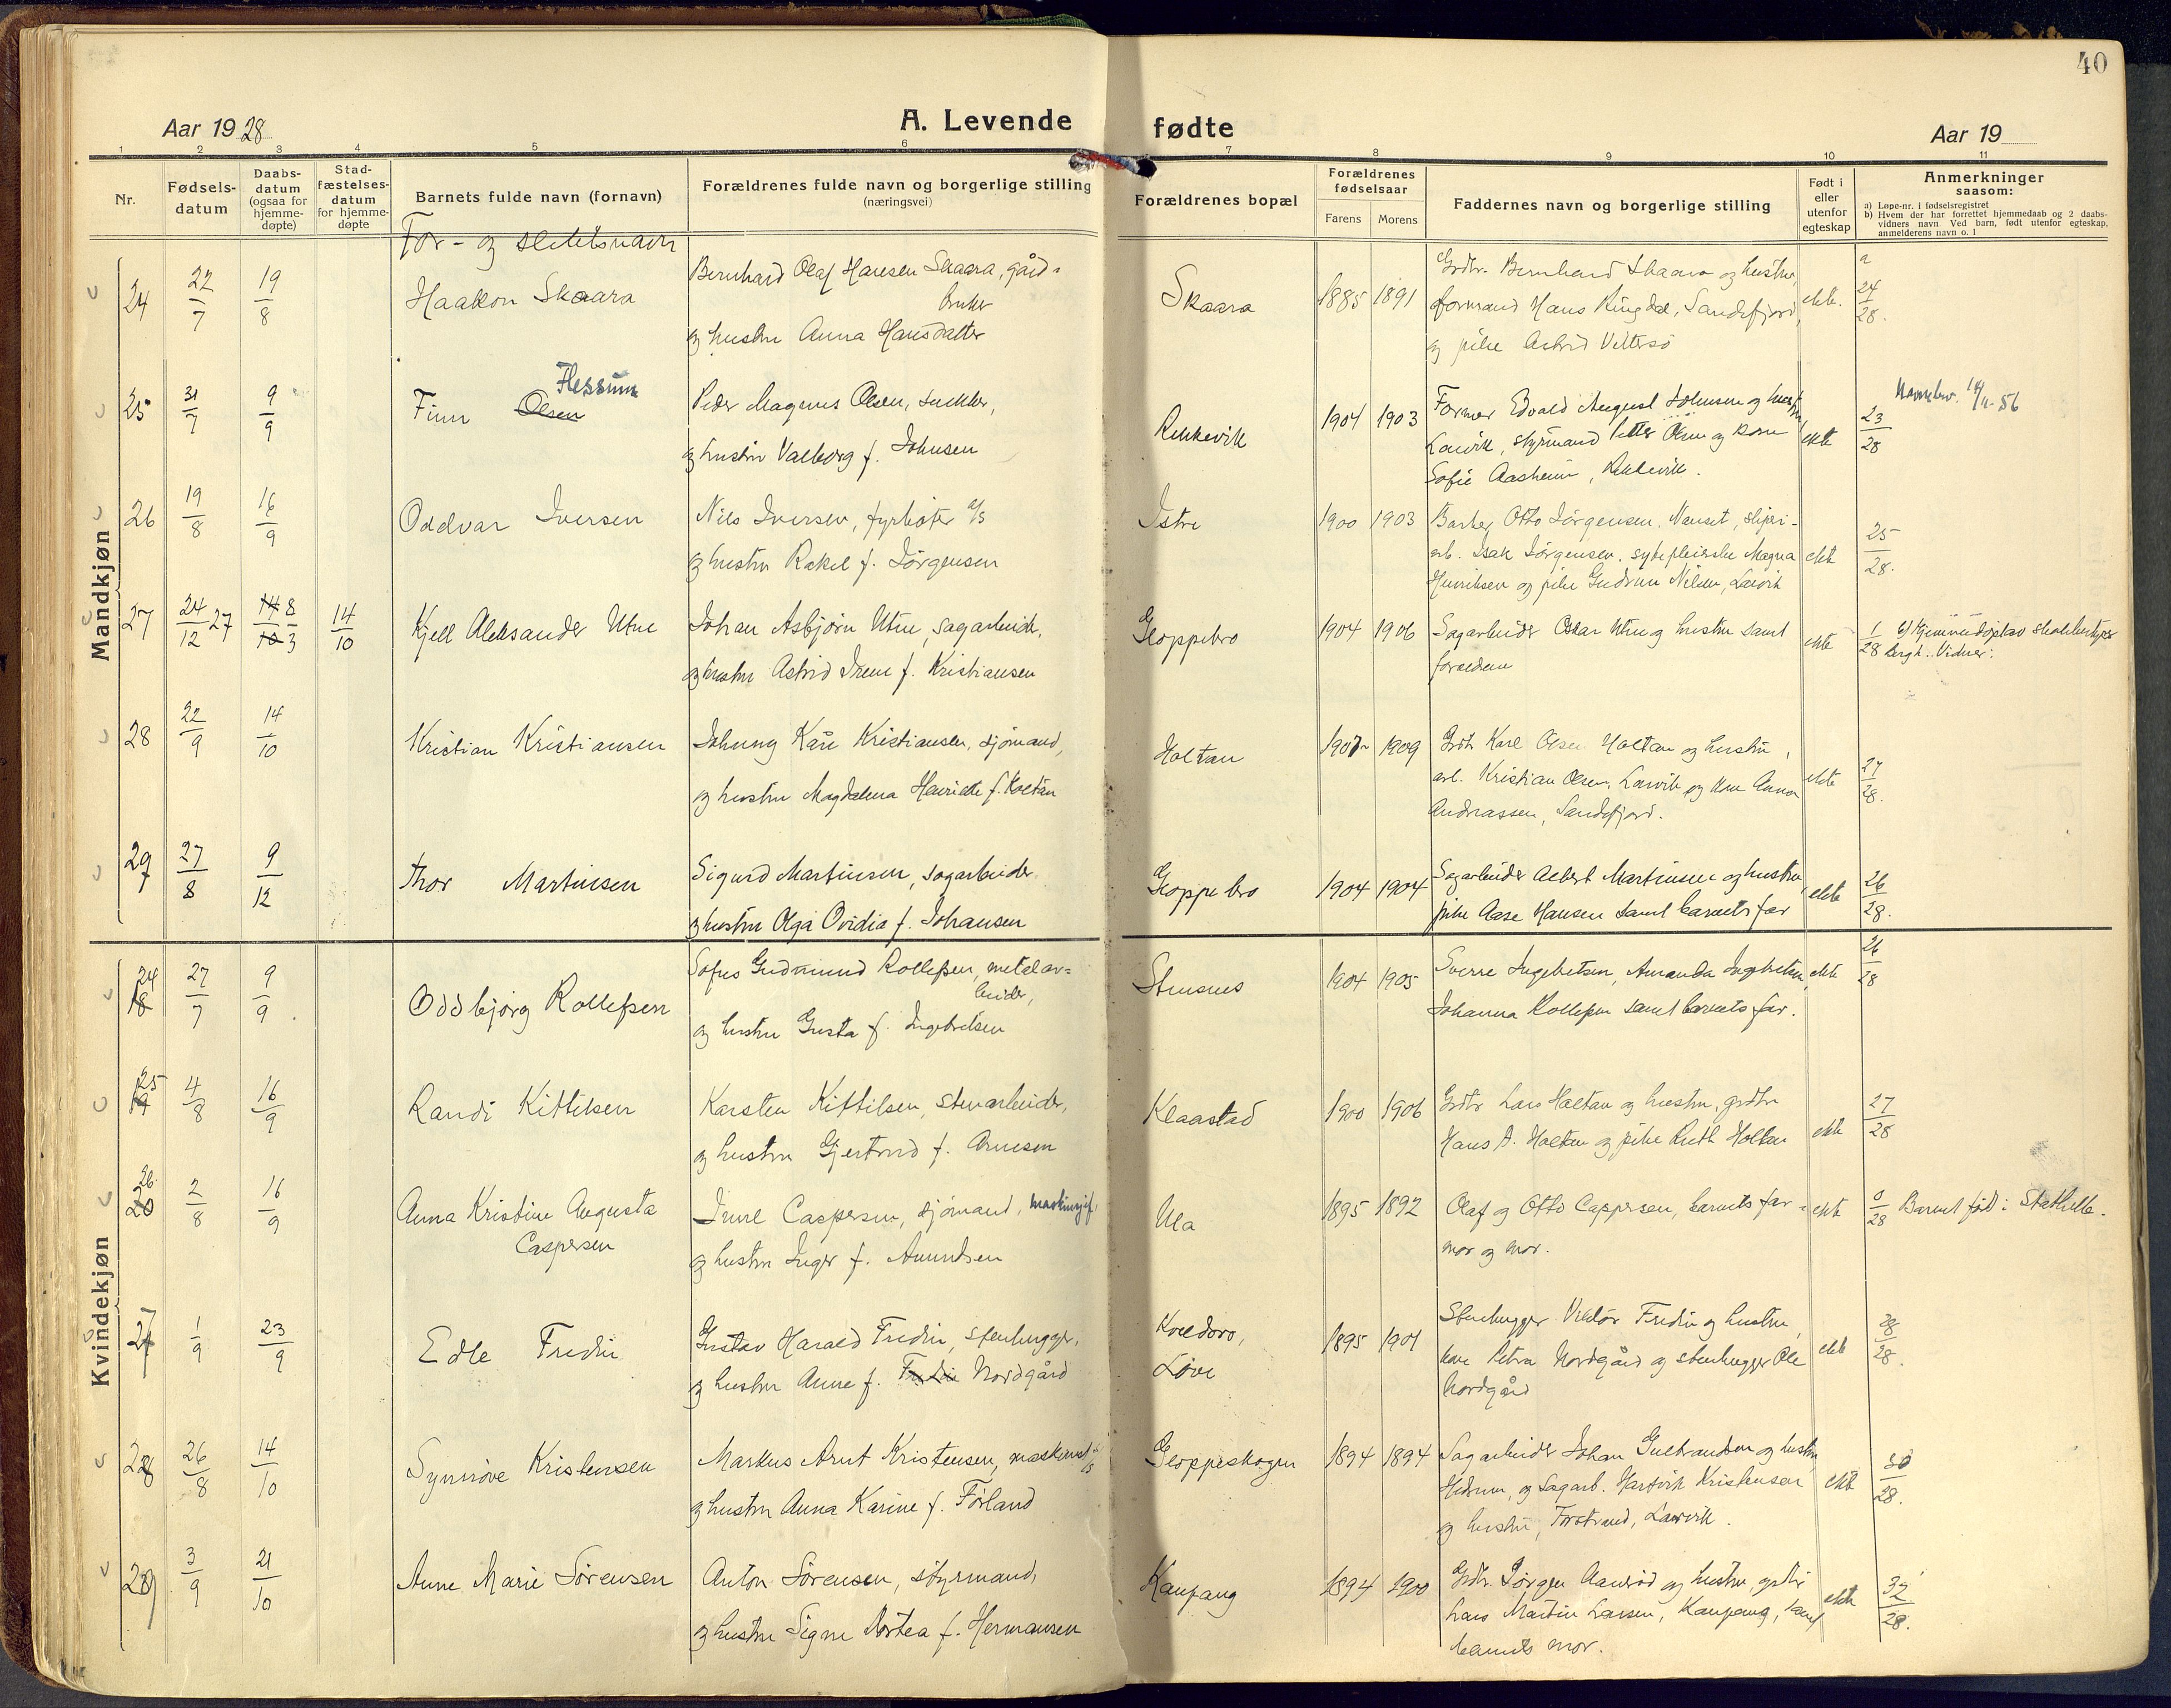 40
Aar 1928
A. Levende fødte
Aar 19
1 2 3 4 5 6 7 8 9 10 11
Nr.
Fødsels-
datum
Daabs-
datum
(ogsaa for
hjemme-
døpte)
Stad-
fæstelses-
datum
for hjemme-
døpte
Barnets fulde navn (fornavn)
For- og slektsnavn
Forældrenes fulde navn og borgerlige stilling
(næringsvei)
Forældrenes bopæl
Forældrenes
fødselsaar
Farens Morens
Faddernes navn og borgerlige stilling
Født i
eller
utenfor
egteskap
Anmerkninger
saasom:
a) Løpe-nr. i fødselsregistret
b) Hvem der har forrettet hjemmedaab og 2 daabs-
vidners navn. Ved barn, født utenfor egteskap,
anmelderens navn o. l
Mandkjøn
24 22/7 19/8 Haakon Skaara
Bernhard Olaf Hansen Skaara, gård-
bruker
og hustru Anna Hansdatter
Skaara 1885 1891
Grdbr. Bernhard Skaara og hustru,
formand Hans Ringdal, Sandefjord,
og pike Astrid Vittersø
ekte. a 24/28.
25 31/7 9/9 Finn Olsen Flessum
Peder Magnus Olsen, snekker,
og hustru Valborg f. Johnsen
Rekkevik 1904 1903
Former Edvald August Johnsen og hustru
Larvik, styrmand Petter Olsen og kone
Sofie Aasheim, Rekkevik.
ekte 23/28 Navnebev. 14/11-56
26 19/8 16/9 Oddvar Iversen
Nils Iversen, fyrbøter d/s
og hustru Rakel f. Jørgensen
Istre 1900 1903
Barber Otto Jørgensen, Nanset, sliperi-
arb. Isak Jørgensen, sykepleierske Magna
Henriksen og pike Gudrun Nilsen, Larvik
ekte 25/28.
27 24/12 27 14/10 8/3 14/10 Kjell Aleksander Utne
Johan Asbjørn Utne, sagarbeider,
og hustru Astrid Irene f. Kristiansen
Gloppebro 1904 1906
Sagarbeider Oskar Utne og hustru samt
foreldrene
ekte 1/28 b) Hjemmedøpt av
Bergh. Vidner:
28 22/9 14/10 Kristian Kristiansen
Johnny Kåre Kristiansen, sjømand,
og hustru Magdalena Henriette f. Holtan
Holtan 1907 1909
Grdbr. Karl Olsen Holtan og hustru,
arb. Kristian Olsen, Larvik og kone Anna
Andreassen, Sandefjord.
ekte 27/28.
29 27/8 9/12 Thor Martinsen
Sigurd Martinsen, sagarbeider,
og hustru Olga Ovidia f. Johansen
Gloppebro 1904 1904
Sagarbeider Albert Martinsen og hustru,
pike Aase Hansen samt barnets far
ekte 26/28.
Kvindekjøn
24 18 27/7 9/9 Oddbjørg Rollefsen
Sofus Gudmund Rollefsen, metalar-
beider,
og hustru Gusta f. Ingebretsen
Stensnes 1904 1905
Sverre Ingebretsen, Amanda Ingebretsen,
Johanna Rollefsen samt barnets far.
ekte 21/28
25 19 4/8 16/9 Randi Kittilsen
Karsten Kittilsen, stenarbeider,
og hustru Gjertrud f. Arnesen
Klaastad 1900 1906
Grdbr Lars Holtan og hustru, grdbr
Hans A. Holtan og pike Ruth Holtan
ekte 27/28
26 20 2/8 16/9 Anna Kristine Augusta
Caspersen
Imre Caspersen, sjømand, maskinsjef,
og hustru Inger f. Amundsen
Ula 1895 1892
Olaf og Otto Caspersen, barnets far-
mor og mor.
ekte 0/28 Barnet født i Stathelle.
27 1/9 23/9 Edle Fredin
Gustav Harald Fredin, stenhugger,
og hustru Anne f. Fredin Nordgård
Kveldoro,
Løve
1895 1901
Stenhugger Viktor Fredin og hustru,
kone Petra Nordgård og stenhugger Ole
Nordgård
ekte 28/28.
28 26/8 14/10 Synnøve Kristensen
Markus Arnt Kristensen, maskinist d/s
og hustru Anna Karine f. Førland
Gloppeskogen 1894 1894
Sagarbeider Johan Gulbrandsen og hustru,
Hedrum, og Sagarb. Hartvik Kristensen
og hustru, Torstrand, Larvik.
ekte 30/28.
29 3/9 21/10 Anne Marie Sørensen
Anton Sørensen, styrmand,
og hustru Signe Dortea f. Hermansen
Kaupang 1894 1900
Grdbr. Jørgen Aamrød og hustru, grdbr
Lars Martin Larsen, Kaupang, samt
barnets mor.
ekte 32/28.